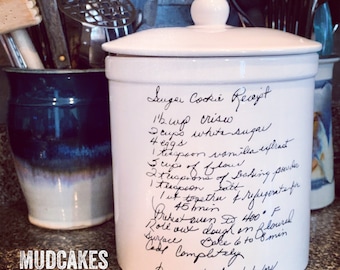 MUDCAKES
Sugar Cookie Receipt
1½ cup crisco
2 cups white sugar
4 eggs
1 teaspoon vanilla extract
5 cups of flour
2 teaspoons of baking powder
1 teaspoon salt
together & refrigerate for
45 min
Preheat oven to 400° F
Roll out dough on floured
surface Bake 6 to 8 min
Cool completely
MUDCAKES